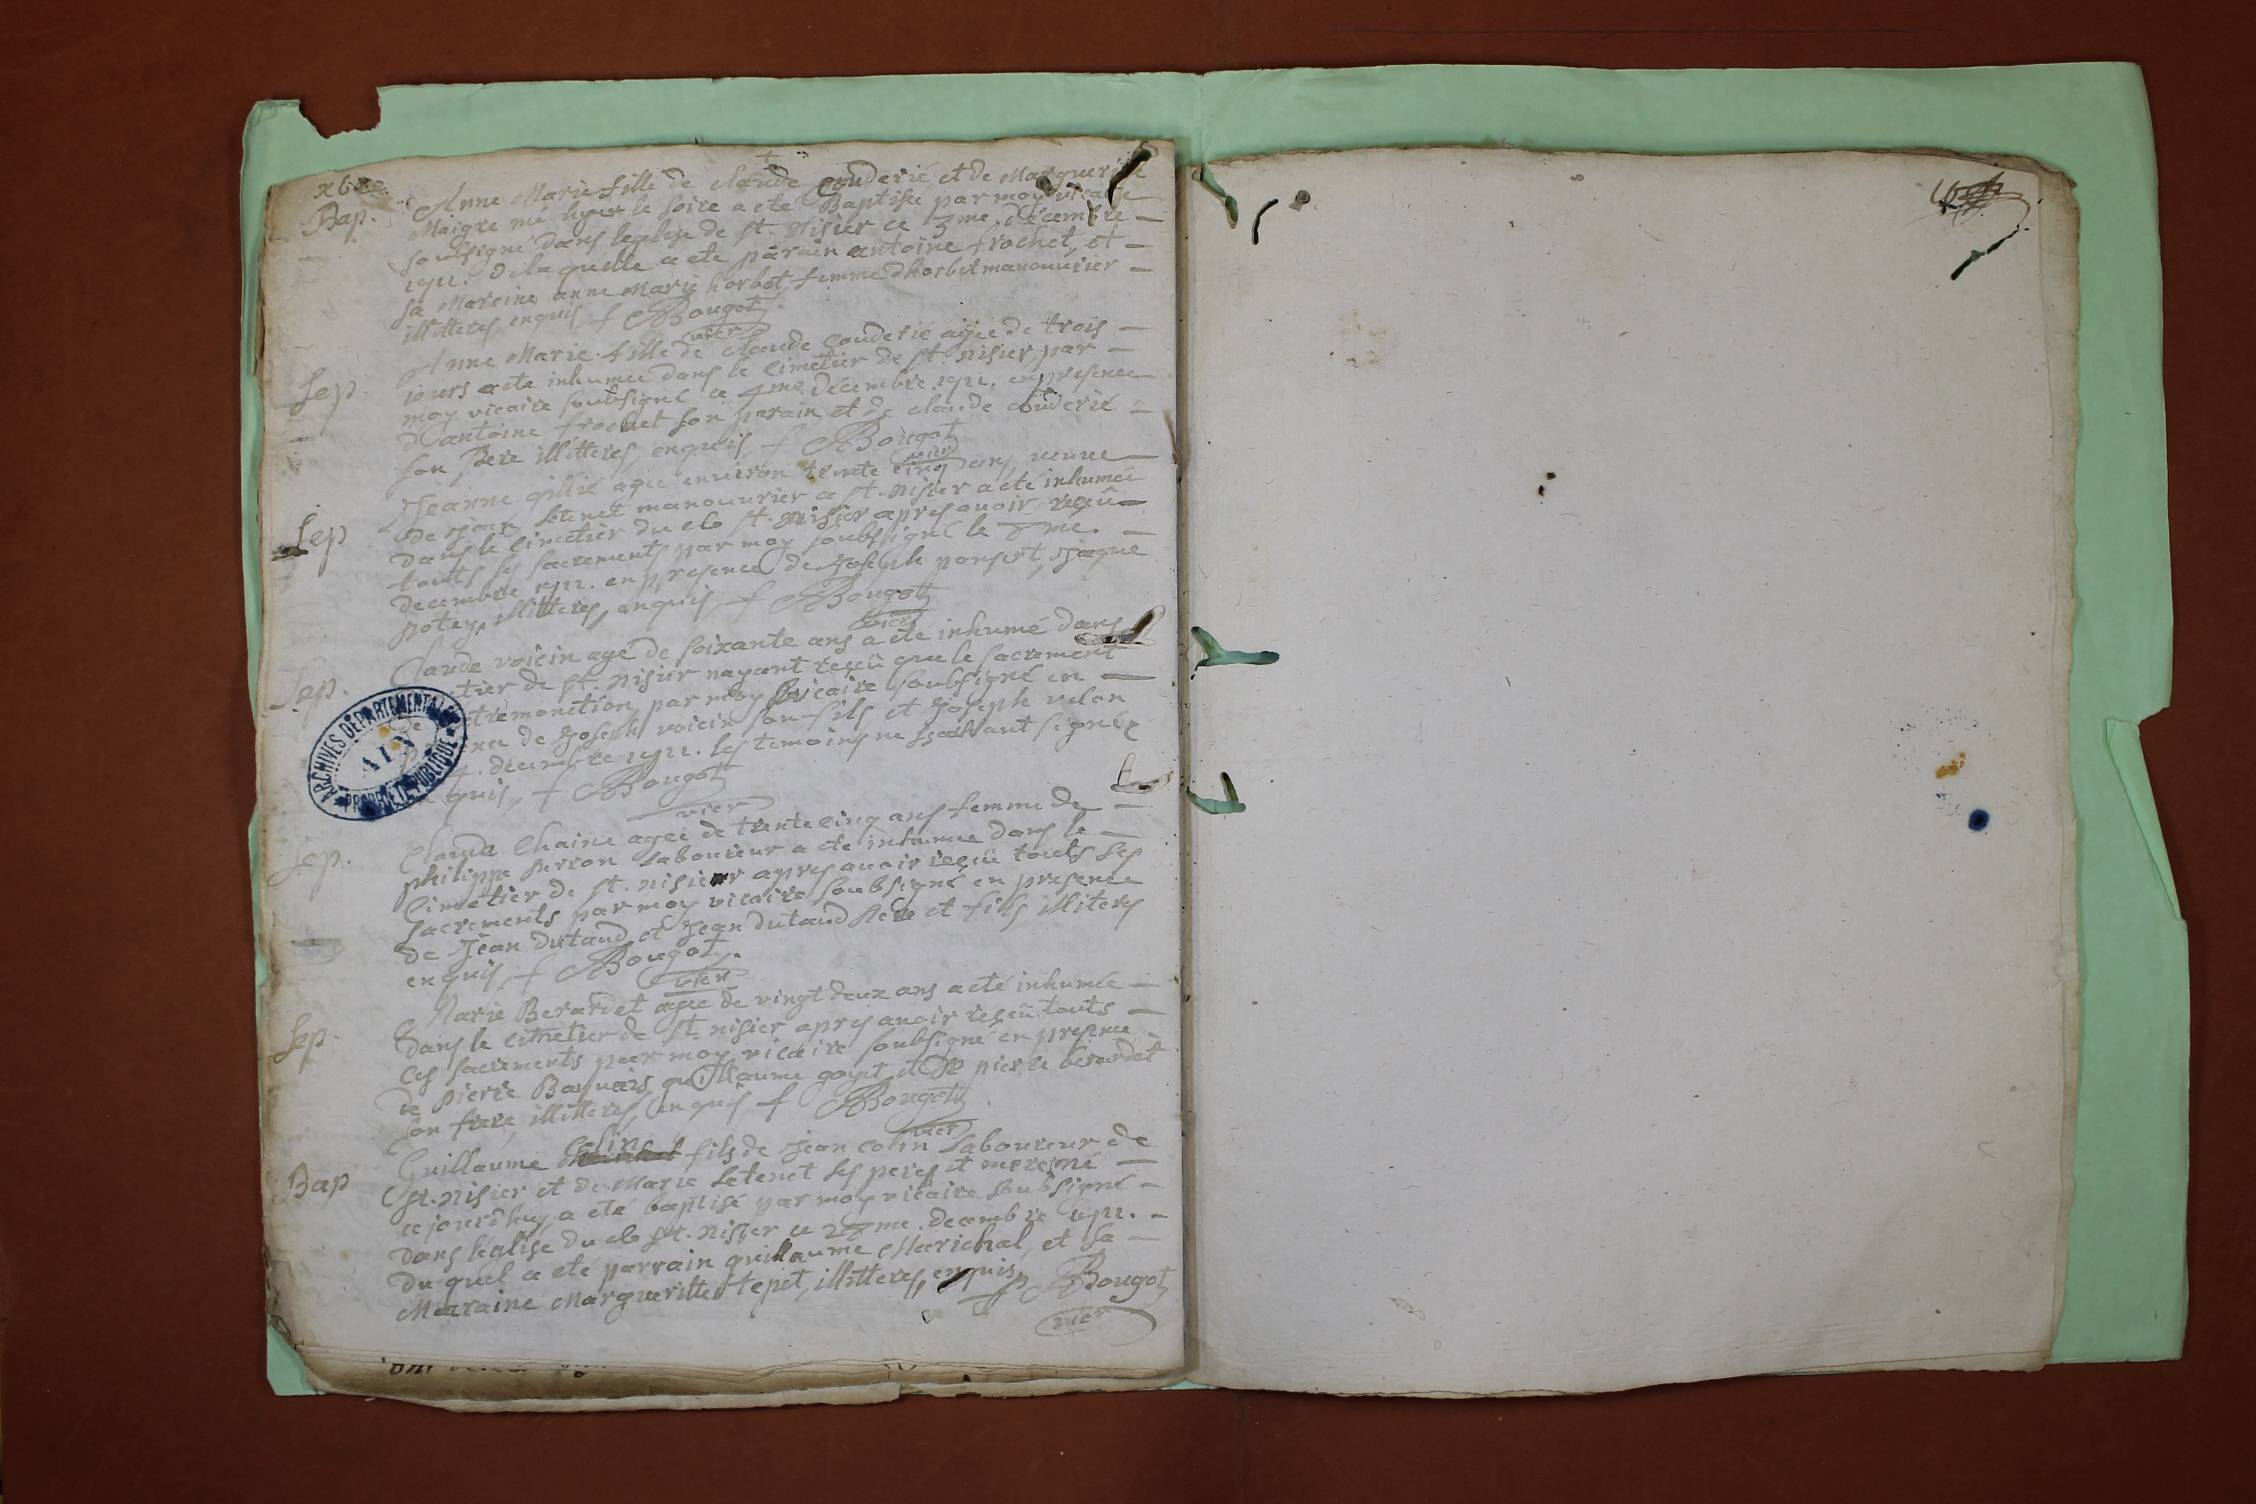 xbre
Bap. Anne Marie fille de claude couderié et de Marguerite
Maigre née hyer le soire a eté Baptisée par moy vicaire
soubsigné dans leglise de st. nisier ce 3me. décembre
1711. de laquelle a eté parain antoine frochet, et
sa Mareine anne Marie horbet femme dhorbet manouurier
illitteres enquis f Bougot
vicr
Sep. Anne Marie fille de claude couderié agée de trois
iours a eté inhumée dans le Cimetier de st. nisier par
moy vicaire soubsigné ce 4me. décembre 1711. en presence
d'antoine frochet son parain et de claude couderié
son Pere illitteres, enquis f Bougot
vicr
Sep Jeanne gillié agée enuiron trente cinq ans, veuue
de jean manouurier a st. nisier a eté inhumée
dans le Cimetier du cb st. nisier apres auoir reçeû
touts ses sacrements par moy soubsigné le 8me.
decembre 1711. en presence de Joseph ponsert, Jaque
potey, illitteres, enquis f Bougot
vicr
Sep. Claude voicin agé de soixante ans a eté inhumé dans
tier de st. nisier nayant reçeû que le sacrement
tremonction, par moy vicaire soubsigné en
nce de Joseph voicin son fils et Joseph velon
décembre 1711. les temoins ne sçachant signé
quis f Bougot
vicr
Sep. Clauda Chaine agée de trente cinq ans femme de
philippe perron Laboureur a eté inhumée dans le
Cimetier de st. nisier apres auoir reçeû touts ses
sacrements par moy vicaire soubsigné en presence
de Jean dutaud et Jean dutaud Pere et fils illiteres
enquis f Bougot.
vicr
Sep. Marie Berardet agée de vingt deux ans a eté inhumée
dans le cimetier de st nisier apres auoir reçeû touts
ces sacrements par moy vicaire soubsigné en presence
de pierre guillaume goyet et de pierre berardet
son frere, illitteres, enquis f Bougot
vicr
Colin
Bap Guillaume fils de Jean colin Laboureur de
st. nisier et de Marie Letenet ses peres et meres né
ce jourdhuy a eté baptisé par moy vicaire soubsigné
dans l'église du cb st. nisier ce 28me. decembre 1711.
du quel a eté parrain guillaume Marichal, et sa
Maraine Margueritte tepet, illitteres, enquis, f Bougot
vicr
ARCHIVES DÉPARTEMENTALES
AIN
PROPRIÉTÉ PUBLIQUE